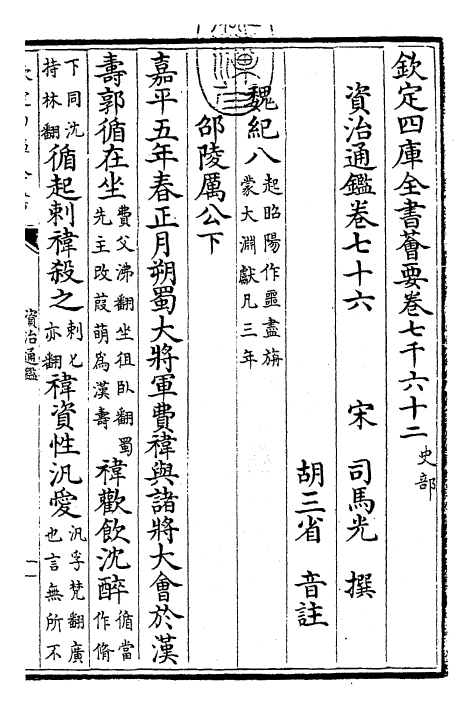 欽定四庫全書薈要卷七千六十二 史部
資治通鑑卷七十六
宋 司馬光 撰
胡三省 音註
魏紀八 起昭陽作噩盡旃蒙大淵獻凡三年
邵陵厲公下
嘉平五年春正月朔蜀大將軍費禕與諸將大會於漢
壽郭循在坐 費父沸翻坐徂卧翻蜀先主改葭萌為漢壽 禕歡飲沈醉 循當作脩
下同沈持林翻 循起刺禕殺之 刺七亦翻 禕資性汎愛 汎孚梵翻廣也言無所不
資治通鑑
一